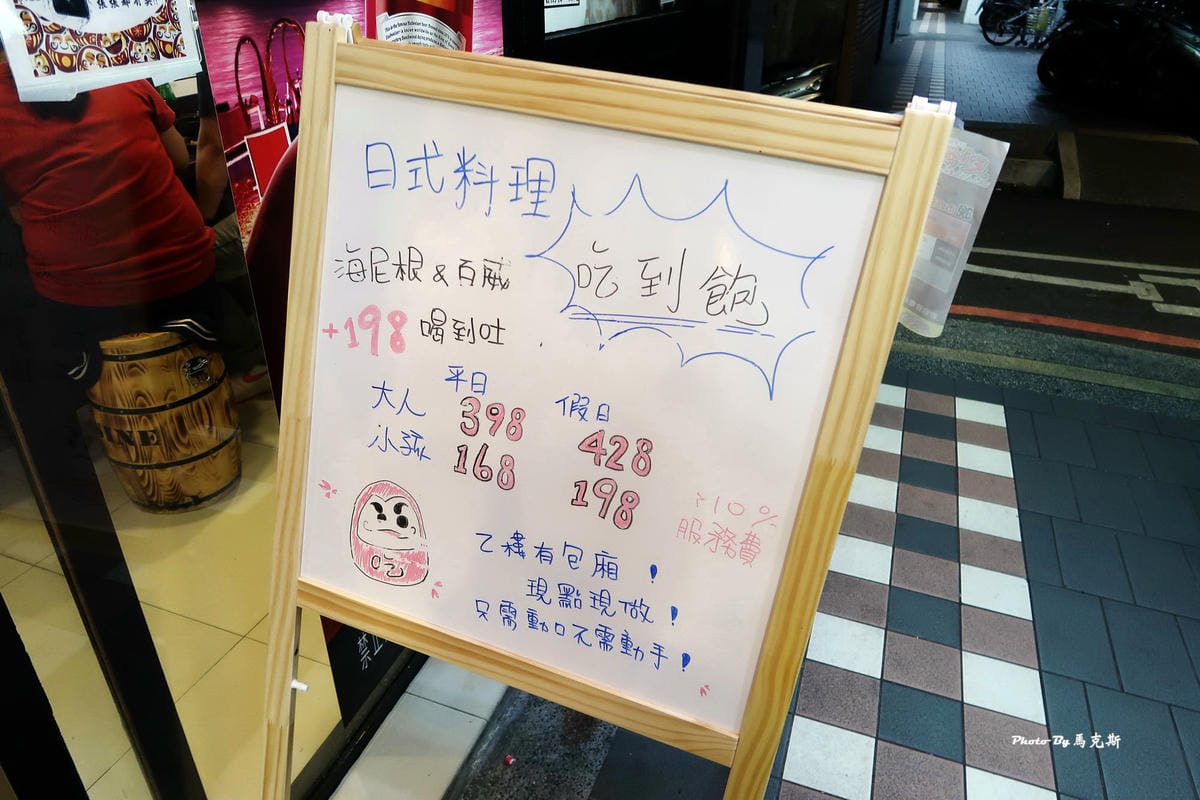 日式料理
吃到飽
海尼根&百威
+198 喝到吐
平日 假日
大人 398 428
小孩 168 198
+10%
服務費
乙樓有包廂！
現點現做！
只需動口不需動手！
吃
INE
禁止
Photo By 馬克斯